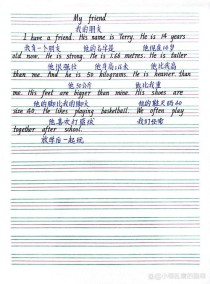 My friend
我的朋友
I have a friend. His name is Terry. He is 14 years
我有一个朋友 他的名字是 他现在14岁
old now. He is strong. He is 1.65 metres. He is taller
他很强壮 他身高1.65米 他比我高
than me. And he is 50 kilograms. He is heavier than
他50公斤 他比我重
me. His feet are bigger than mine. His shoes are
他的脚比我的脚大 他的鞋是码40
size 40. He likes playing basketball. We often play
他喜欢打篮球 我们经常
together after school.
放学后一起玩